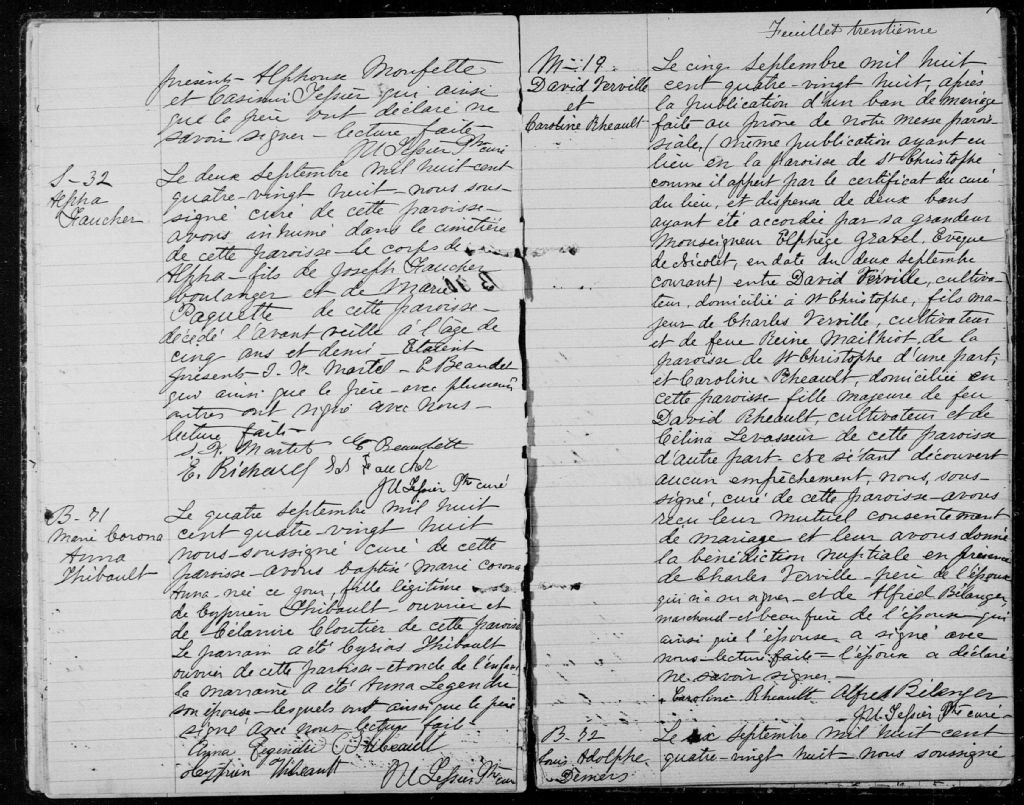 présents Alphonse Moufette
et Casimir Tessier qui ainsi
que le père ont déclaré ne
savoir signer - lecture faite
JU Tessier Ptre curé
S-32
Alpha
Faucher
Le deux septembre mil huit cent
quatre-vingt huit - nous sous-
signé curé de cette paroisse -
avons inhumé dans le cimetière
de cette paroisse - le corps de
Alpha - fils de Joseph Faucher
boulanger et de Marie
Paquette de cette paroisse -
décédé l'avant veille à l'âge de
cinq ans et demi Etaient
présents - Martel - E Beaudet
qui ainsi que le père - avec plusieurs
autres ont signé avec nous -
lecture faite -
Martel E Beaudette
E. Richard Faucher
JU Tessier Ptre curé
B-71
Marie Corona
Anna
Thibault
Le quatre septembre mil huit
cent quatre-vingt huit
nous - soussigné curé de cette
paroisse - avons baptisé Marie Corona
Anna - née ce jour, fille légitime
de Cyprien Thibault - ouvrier et
de Célanire Cloutier de cette paroisse
Le parrain a été Cyrias Thibault
ouvrier de cette paroisse - et oncle de l'enfant
la marraine a été Anna Legendre
son épouse - lesquels ont ainsi que le père
signé avec nous lecture faite -
Anna Legendre C Thibeault
Cyprien Thibeault
JU Tessier Ptre curé
Feuillet trentième
M-19
David Verville
et
Caroline Rheault
Le cinq septembre mil huit
cent quatre-vingt huit, après
la publication d'un ban de mariage
faite au prône de notre messe parois-
siale, (même publication ayant eu
lieu en la paroisse de St Christophe
comme il appert par le certificat du curé
du lieu, et dispense de deux bans
ayant été accordée par sa grandeur
Monseigneur Elphège Gravel, Evêque
de Nicolet, en date du deux septembre
courant) entre David Verville, cultiva-
teur, domicilié à St Christophe, fils ma-
jeur de Charles Verville, cultivateur
et de feue Reine Mailhiot, de la
paroisse de St Christophe d'une part;
et Caroline Rheault, domiciliée en
cette paroisse - fille majeure de feu
David Rheault, cultivateur et de
Célina Levasseur de cette paroisse
d'autre part - Ne s'étant découvert
aucun empêchement, nous, sous-
signé, curé de cette paroisse - avons
reçu leur mutuel consentement
de mariage et leur avons donné
la bénédiction nuptiale en présence
de Charles Verville - père de l'époux
qui n'a su signer - et de Alfred Bélanger,
marchand - et beau frère de l'épouse qui
ainsi que l'épouse a signé avec
nous - lecture faite - l'époux a déclaré
ne savoir signer. -
Caroline Rheault Alfred Bélanger
JU Tessier Ptre curé -
B. 72
Louis Adolphe
Demers
Le septembre mil huit cent
quatre-vingt huit - nous soussigné